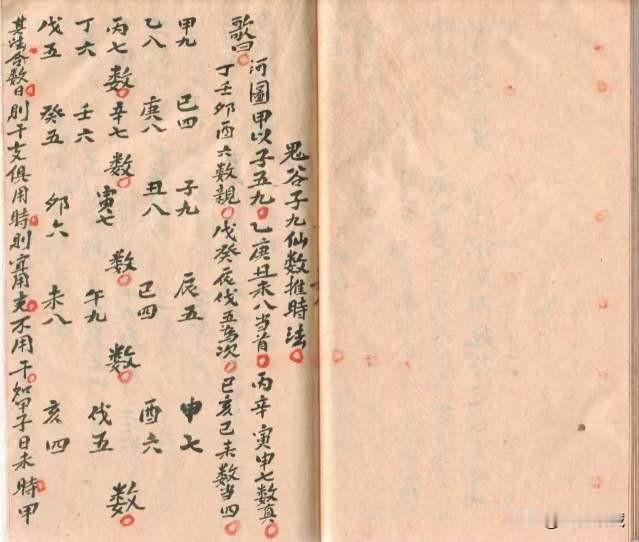 鬼谷子九仙数推時法
歌曰 河圖甲以子五九 乙庚丑未八当首 丙辛寅申七数真
丁壬夘酉六数親 戊癸辰伐五為次 巳亥已来数当四
甲九 已四 子九 辰五 申七
乙八 庚八 丑八 已四 酉六
丙七 数 辛七 数 寅七 数 午九 数 伐五 数
丁六 壬六
戊五 癸五 夘六 未八 亥四
其法令数日則干支俱用時則宜用支不用干如甲子日未時甲